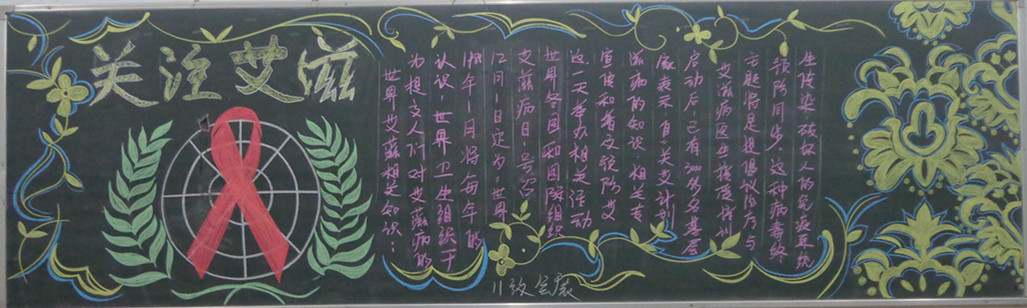 关注艾滋
世界艾滋相关知识：
为提交人们对艾滋病的
认识，世界卫生组织于
1988年1月将每年的
12月1日定为世界
艾滋病日，号召
世界各国和国际组织
这一天举办相关活动
宣传和普及预防艾
滋病的知识。相关专
家表示，自"关艾计划
启动后，已有多名基层
艾滋病医生接受培训
主题将是提倡议治疗与
预防同步，这种病毒终
生传染，破坏人的免疫系统
11级会展